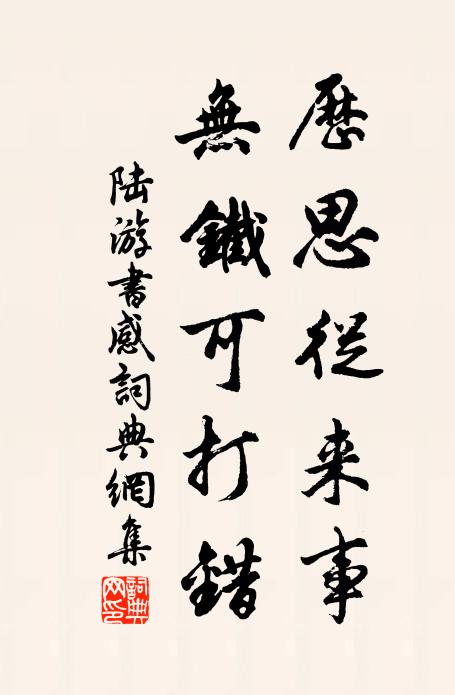 歷思從来事
無鐵可打錯
陆游書感詞典網集
詞典网印